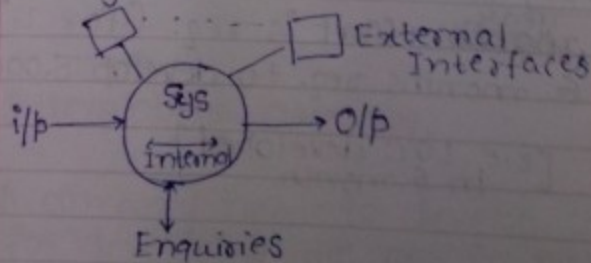 External
Interfaces
Sys
i/p
O/p
Internal
Enquiries